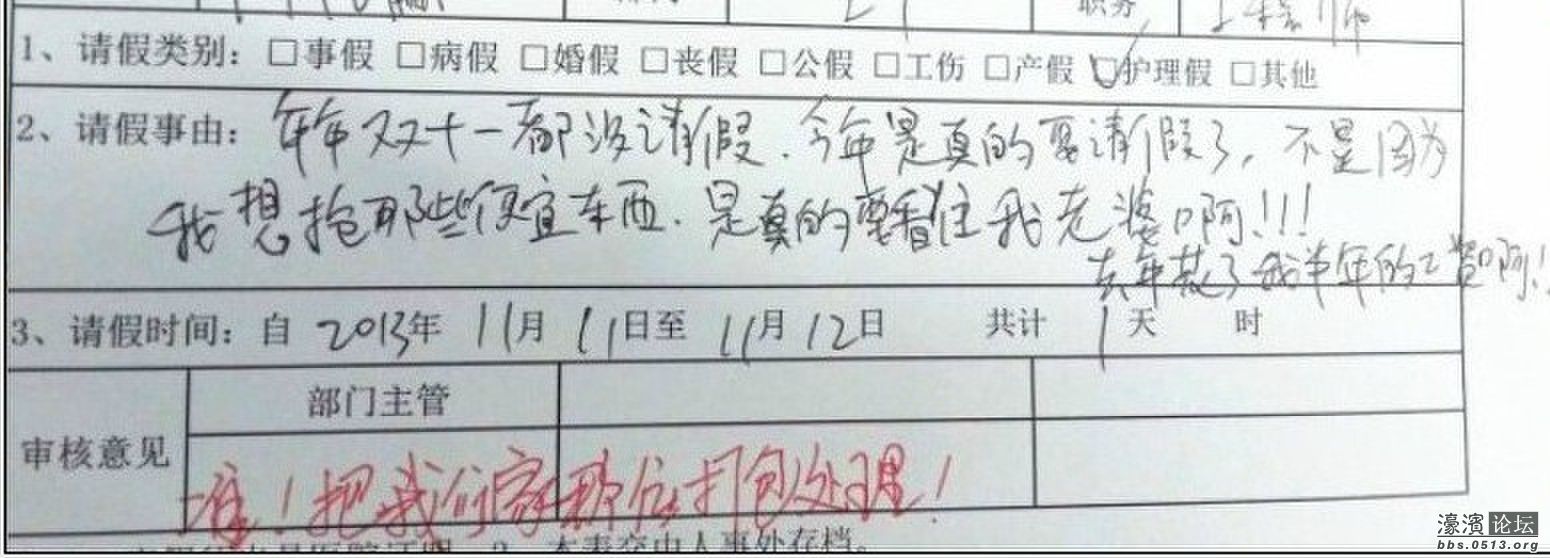 职务 工程师
1、请假类别：□事假 □病假 □婚假 □丧假 □公假 □工伤 □产假 ☑护理假 □其他
2、请假事由：年年双十一都没请假．今年是真的要请假了，不是因为
我想抢那些便宜东西．是真的要看住我老婆啊！！！
去年花了我半年的工资啊！
3、请假时间：自 2013年 11月 11日至 11月 12日 共计 1 天 时
部门主管
审核意见
准！把我们家那位打包处理！
本表交由人事处存档。
濠滨论坛
bbs.0513.org